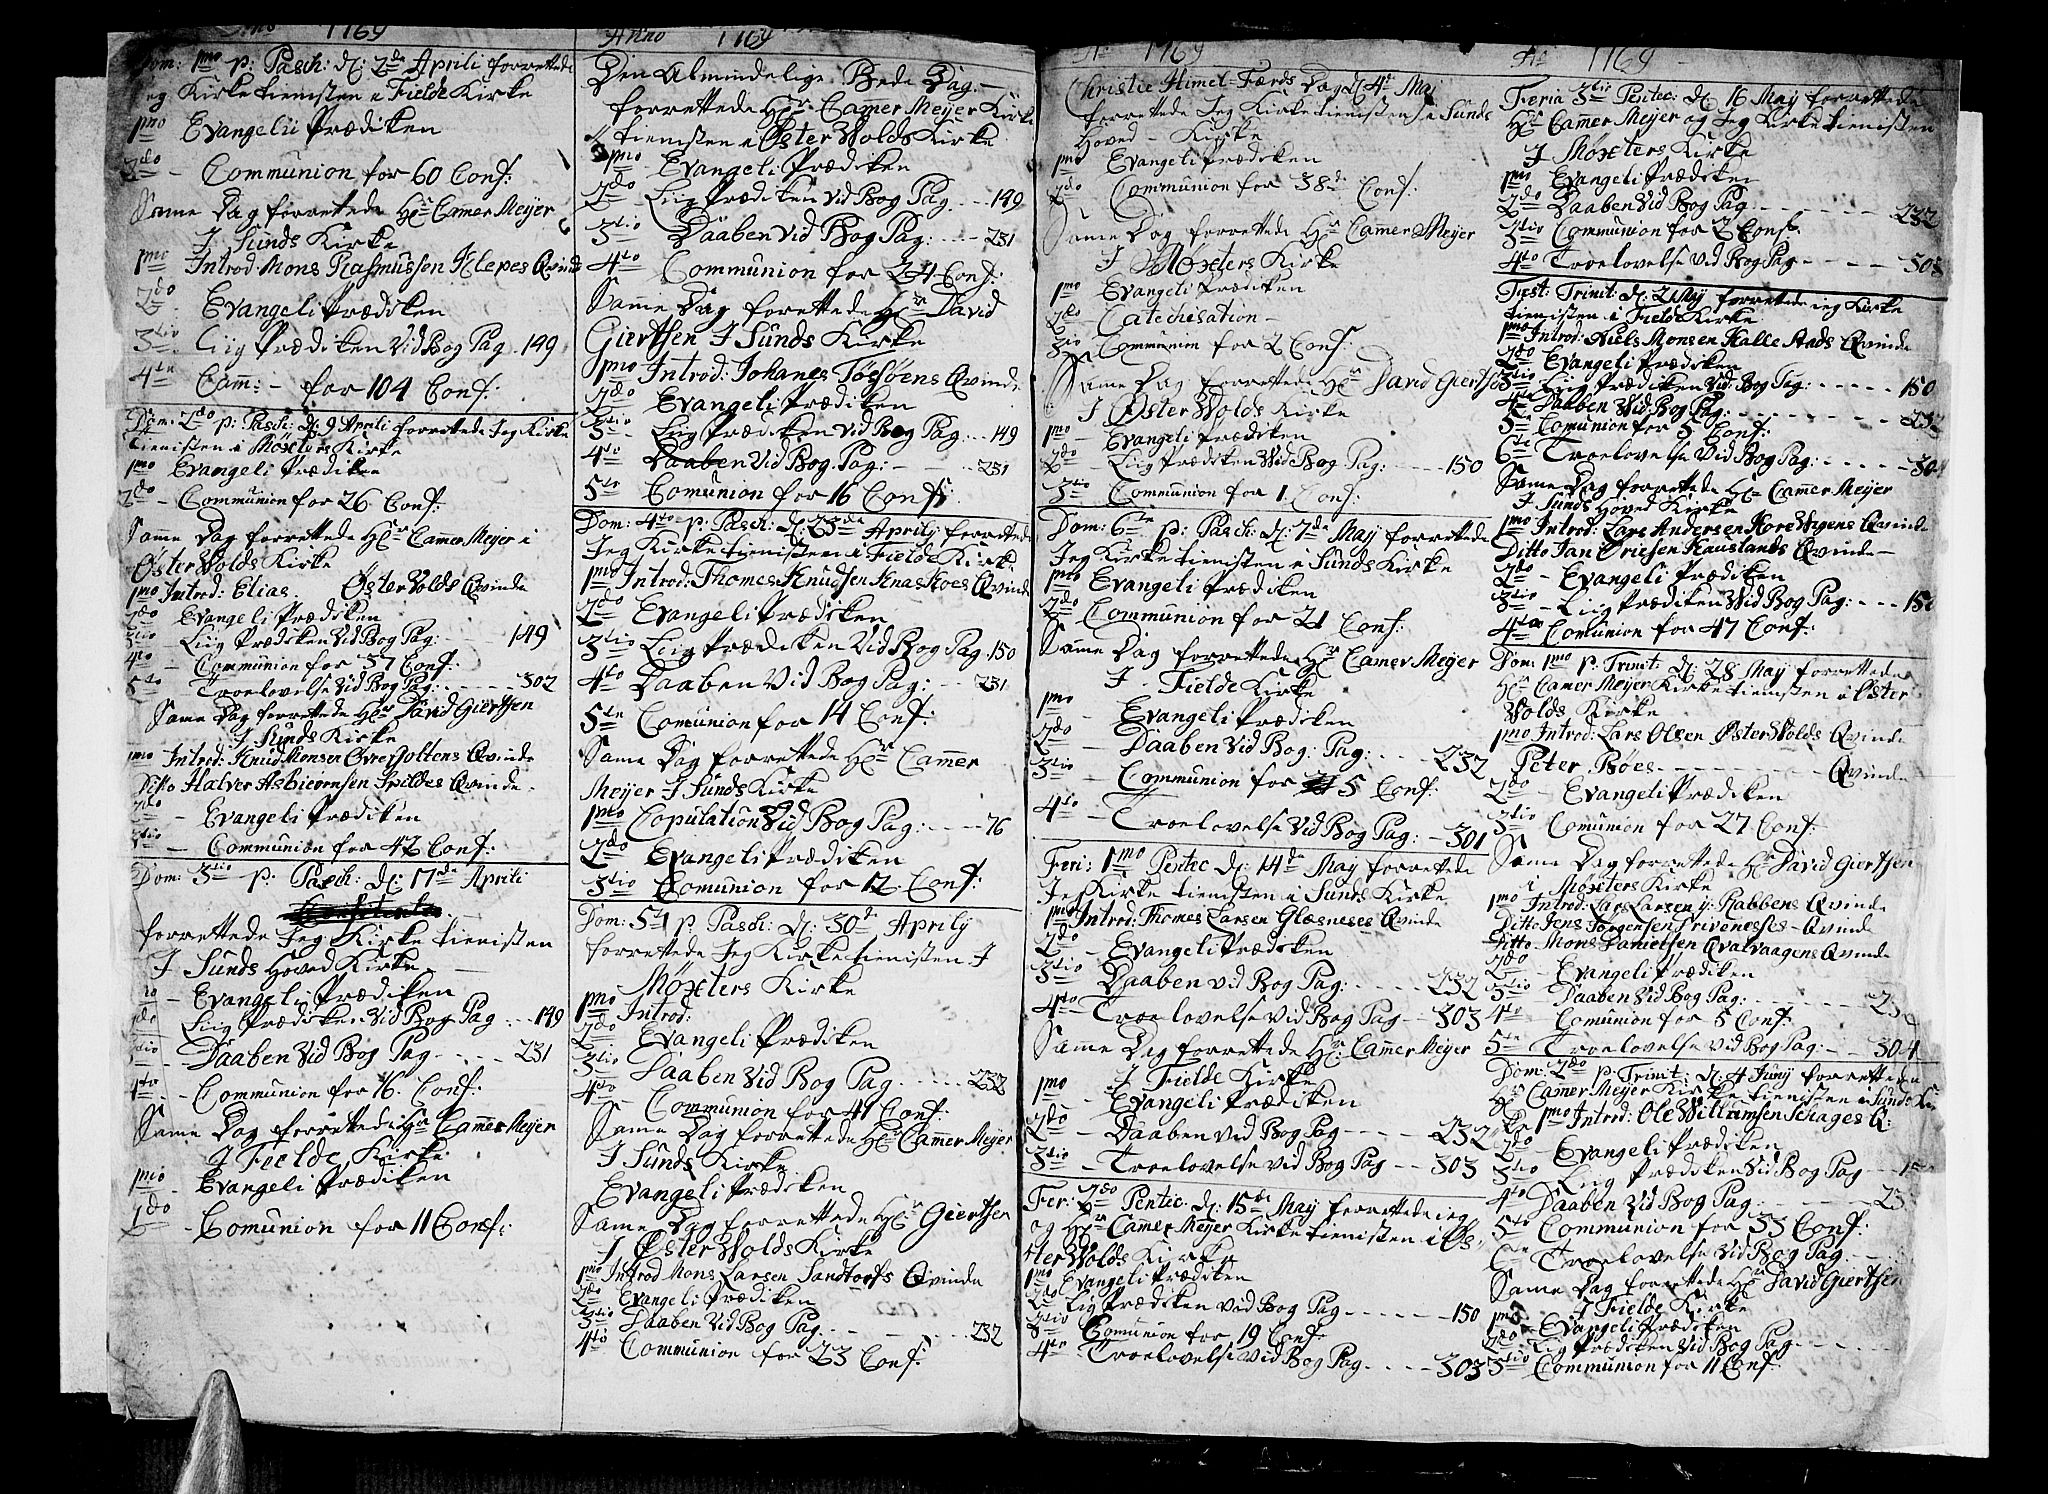 Anno 1769
Dom: 1mo p: Pasch: d: 2de Aprili forrettede
Jeg Kirketienisten i Fielde Kirke
1mo Evangelii Prædiken
2do - Communion for 60 Conf:
Samme Dag forrettede Hr Camer Meijer
J Sunds Kirke
1mo Introd. Mons Rasmussen Klepes Qvinde
2do Evangeli Prædiken
3tio Liig Prædiken Vid Bog Pag. 149
4te Com: - for 104 Conf:
Dom: 2do p: Pasch: d: 9 Aprili forrettede Jeg Kirke
tienisten i Møxters Kirke
1mo Evangeli Prædiken
2do - Communion for 26 Conf:
Samme Dag forrettede Hr Camer Meijer i
Øster Wolds Kirke
1mo Introd: Elias Øster Volds Qvinde
2do Evangeli Prædiken
3tio - Liig Prædiken Vid Bog Pag: - 149
4to - Communion for 37 Conf:
5to - Troelovelse Vid Bog Pag: - 302
Same Dag forrettede Hr David Giertsen
J Sunds Kirke
1mo Introd: Knud Monsen Øvre Goltens Qvinde
Ditto Halver Asbiørnsen Spildes Qvinde.
2do - Evangeli Prædiken
3tio - Communion for 42 Conf:
Dom: 3tio p: Pasch: d: 17de Aprili
forrettede Jeg Kirke tienisten
J Sunds Hoved Kirke
1mo - Evangeli Prædiken
2do Liig Prædiken Vid Bog Pag - 149
3tio - Daaben Vid Bog Pag - 231
4to - Communion for 16. Conf:
Samme Dag forrettede Hr Camer Meijer
J Fielde Kirke
1mo - Evangeli Prædiken
2do - Comunion for 11 Conf:
Anno 1769
Den Almindelige Bede Dag -
forrettede Hr: Camer Meijer Kirke
tienisten i Øster Wolds Kirke
1mo - Evangeli Prædiken
2do - Liig Prædiken Vid Bog Pag - 149
3tio Daaben Vid Bog Pag: - 231
4to Communion for 24 Conf:
Samme Dag forrettede Hr David
Giertsen J Sunds Kirke
1mo Introd: Johanes Toesøens Qvinde
2do Evangeli Prædiken
3tio - Liig Prædiken Vid Bog Pag - 149
4to Daaben Vid Bog Pag: - 231
5te Comunion for 16 Conf:
Dom: 4to p: Pasch: d: 23de Aprilij forrettede
Jeg Kirke tienisten i Fielde Kirke.
1mo Introd: Thomes Knudsen Qvinde
2do Evangeli Prædiken
3tio Liig Prædiken Vid Bog Pag 150
4to Daaben Vid Bog Pag: - 231
5te Comunion for 14 Conf:
Samme Dag forrettede Hr Camer
Meijer J Sunds Kirke
1mo Copulation Vid Bog Pag: - 76
2do Evangeli Prædiken
3tio Comunion for 12 Conf:
Dom: 5te p: Pasch: d: 30de Aprilij
forrettede Jeg Kirke tienisten J
Møxters Kirke
1mo Introd:
2do Evangeli Prædiken
3tio Daaben Vid Bog Pag - 232
4to - Communion for 41 Conf:
Samme Dag forrettede Hr Camer Meijer
J Sunds Kirke
Evangeli Prædiken
Samme Dag forrettede Hr Giertsen
J Øster Wolds Kirke
1mo Introd Mons Larsen Sandtorfs Qvinde
2do Evangeli Prædiken
3tio - Daaben Vid Bog Pag - 232
4to Communion for 23 Conf:
Ao 1769
Christie Himel-Færds Dag d: 4de Maij
forrettede Jeg Kirke tienisten J Sunds
Hoved - Kirke
1mo Evangeli Prædiken
2do Communion for 38de Conf:
Samme Dag forrettede Hr Camer Meijer
J Møxters Kirke
1mo Evangeli Prædiken
2do - Catechisation -
3tio Communion for 2 Conf:
Samme Dag forrettede Hr David Giertsen
J Øster Wolds Kirke
1mo - Evangeli Prædiken
2do Liig Prædiken Vid Bog Pag: - 150
3tio Communion for 1 Conf:
Dom: 6te p: Pasch: d: 7de Maij forrettede
Jeg Kirke tienisten i Sunds Kirke
1mo Evangeli Prædiken
2do Communion for 21 Conf:
Samme Dag forrettede Hr Camer Meijer
J. Fielde Kirke
1mo - Evangeli Prædiken
2do - Daaben Vid Bog: Pag: - 232
3tio - Communion for 5 Conf:
4to - Troelovelse Vid Bog Pag: - 301
Feri: 1mo Pentec d: 14de Maij forrettede
Jeg Kirke tienisten i Sunds Kirke
1mo Introd: Thomes Larsen Glæsneses Qvinde
2do - Evangeli Prædiken
3tio - Daaben vid Bog Pag: - 232
4to - Troelovelse vid Bog Pag - 303
Samme Dag forrettede Hr: Camer Meijer
J Fielde Kirke
1mo - Evangeli Prædiken
2do - Daaben vid Bog Pag - 232
3tio - Troelovelse vid Bog Pag - 303
Fer: 2do Pentec: d: 15de Maij forrettede jeg
og Hr Camer Meijer Kirke tienisten i Øs-
ter Wolds Kirke
1mo Evangeli Prædiken
2do Liig Prædiken Vid Bog Pag - 150
3tio Comunion for 19 Conf:
4to - Troelovelse Vid Bog Pag - 303
Ao 1769
Feria 3tio Pentec: d: 16 Maij forrettede
Hr Camer Meijer og Jeg Kirke tienisten
J Møxters Kirke
1mo Evangeli Prædiken
2do Daaben Vid Bog Pag - 232
3tio Communion for 2 Conf:
4to Troelovelse Vid Bog Pag - 303
Fest: Trinit: d: 21 Maij forrettede jeg Kirke
tienisten i Fielde Kirke
1mo Introd: Niels Monsen Qvinde
2do Evangeli Prædiken
3tio Liig Prædiken Vid: Bog Pag: - 150
4to Daaben Vid Bog Pag: - 232
5te Comunion for 5 Conf:
6te Troelovelse Vid Bog Pag: - 304
Samme Dag forrettede Hr Camer Meijer
J Sunds Hoved Kirke
1mo Introd: Lars Andersen Qvinde
Ditto Qvinde -
2do - Evangeli Prædiken
3tio - Liig Prædiken Vid Bog Pag: - 150
4to Comunion for 47 Conf:
Dom: 1mo p: Trinit: d: 28 Maij forrettede
Hr Camer Meijer Kirke tienisten i Øster
Wolds Kirke
1mo Introd: Lars Olsen Øster Wolds Qvinde
Peter Bøes - Qvinde
2do - Evangeli Prædiken
3tio Comunion for 27 Conf:
Samme Dag forrettede Hr David Giertsen
i Møxters Kirke
1mo Introd: Lars Larsen Rabbens Qvinde
Ditto Jens Jørgensen Qvinde
Ditto Mons Danielsen Qvalvaagens Qvinde
2do - Evangeli Prædiken
3tio - Daaben Vid Bog Pag: -
4to - Comunion for 5 Conf:
5te - Troelovelse Vid Bog Pag: - 304
Dom: 2do p: Trinit: d: 4 Junij forrettede
Hr Camer Meijer Kirke tienisten i Sunds Kir
ke 1mo Introd: Ole Willumsen Schages Q:
2do - Evangeli Prædiken
3tio Liig Prædiken Vid Bog Pag -
4to Daaben Vid Bog Pag -
5to Communion for 33 Conf:
Troelovelse Vid Bog Pag -
Samme Dag forrettede Hr David Giertsen
J Fielde Kirke
1mo - Evangeli Prædiken
2do - Liig Prædiken Vid Bog Pag -
3tio Communion for 11 Conf: